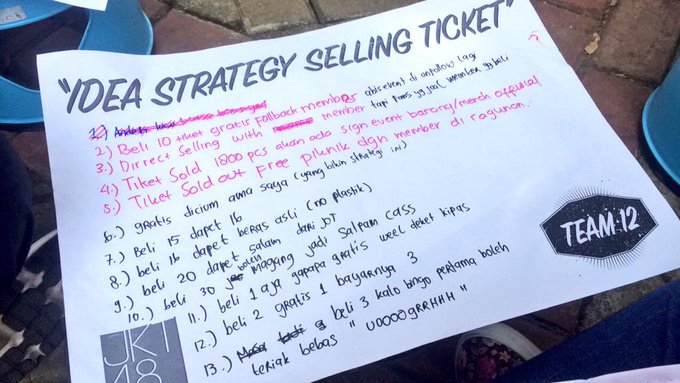 "IDEA STRATEGY SELLING TICKET"
1.)
2.) Beli 10 tiket gratis follback member abis event di unfollow lagi
3.) Dirrect selling with member tapi fans yg jual member yg beli
4.) Tiket Sold 1800 pcs akan ada sign event barang/merch official
5.) Tiket Sold out Free piknik dgn member di ragunan.
6.) gratis dicium ama saya (yang bikin strategi ini)
7.) Beli 15 dapet 16
8.) beli 16 dapet beras asli (no plastik)
9.) beli 20 dapet salam dari JOT
10.) beli 30 boleh magang jadi Satpam CASS
11.) beli 1 aja gapapa gratis weel deket kipas
12.) beli 2 gratis 1 bayarnya 3
13.) beli 3 kalo bingo pertama boleh
teriak bebas " UOOOOgRRHHH "
TEAM 12
JKT
48